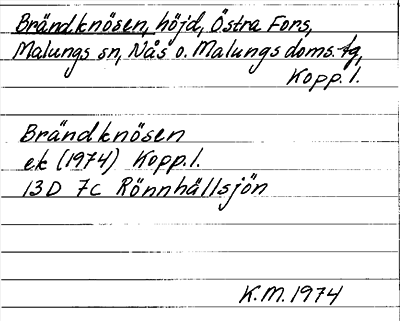 Brändknösen, höjd, Östra Fors,
Malungs sn, Nås o. Malungs doms.tg,
Kopp. l.
Brändknösen
ek (1974) Kopp. l.
13D 7c Rönnhällsjön
K.M. 1974